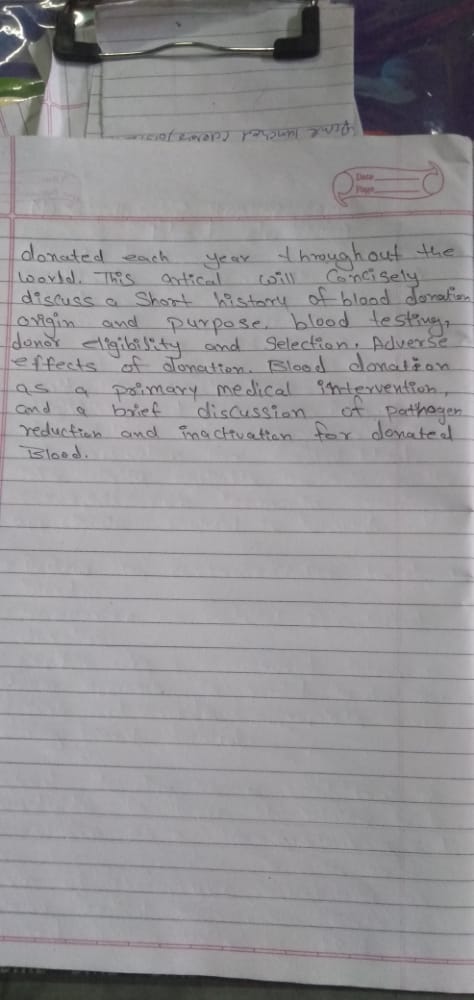 Date
Page
donated each year throughout the
world. This artical will Concisely
discuss a Short history of blood donation
origin and purpose, blood testing,
donor eligibility and Selection, Adverse
effects of donation. Blood donation
as a primary medical intervention,
and a brief discussion of pathogen
reduction and inactivation for donated
Blood.